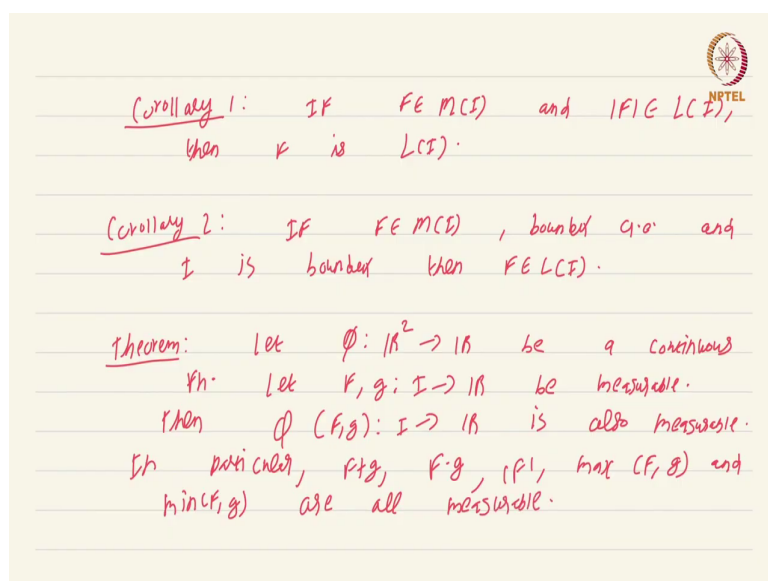 NPTEL
Corollary 1: If F ∈ M(I) and |F| ∈ L(I),
then F is L(I).
Corollary 2: If F ∈ M(I), bounded a.e. and
I is bounded then F ∈ L(I).
Theorem: Let φ: ℝ² → ℝ be a continuous
fn. Let F, g: I → ℝ be measurable.
Then φ(F,g): I → ℝ is also measurable.
In particular, F+g, F·g, |F|, max(F, g) and
min(F, g) are all measurable.